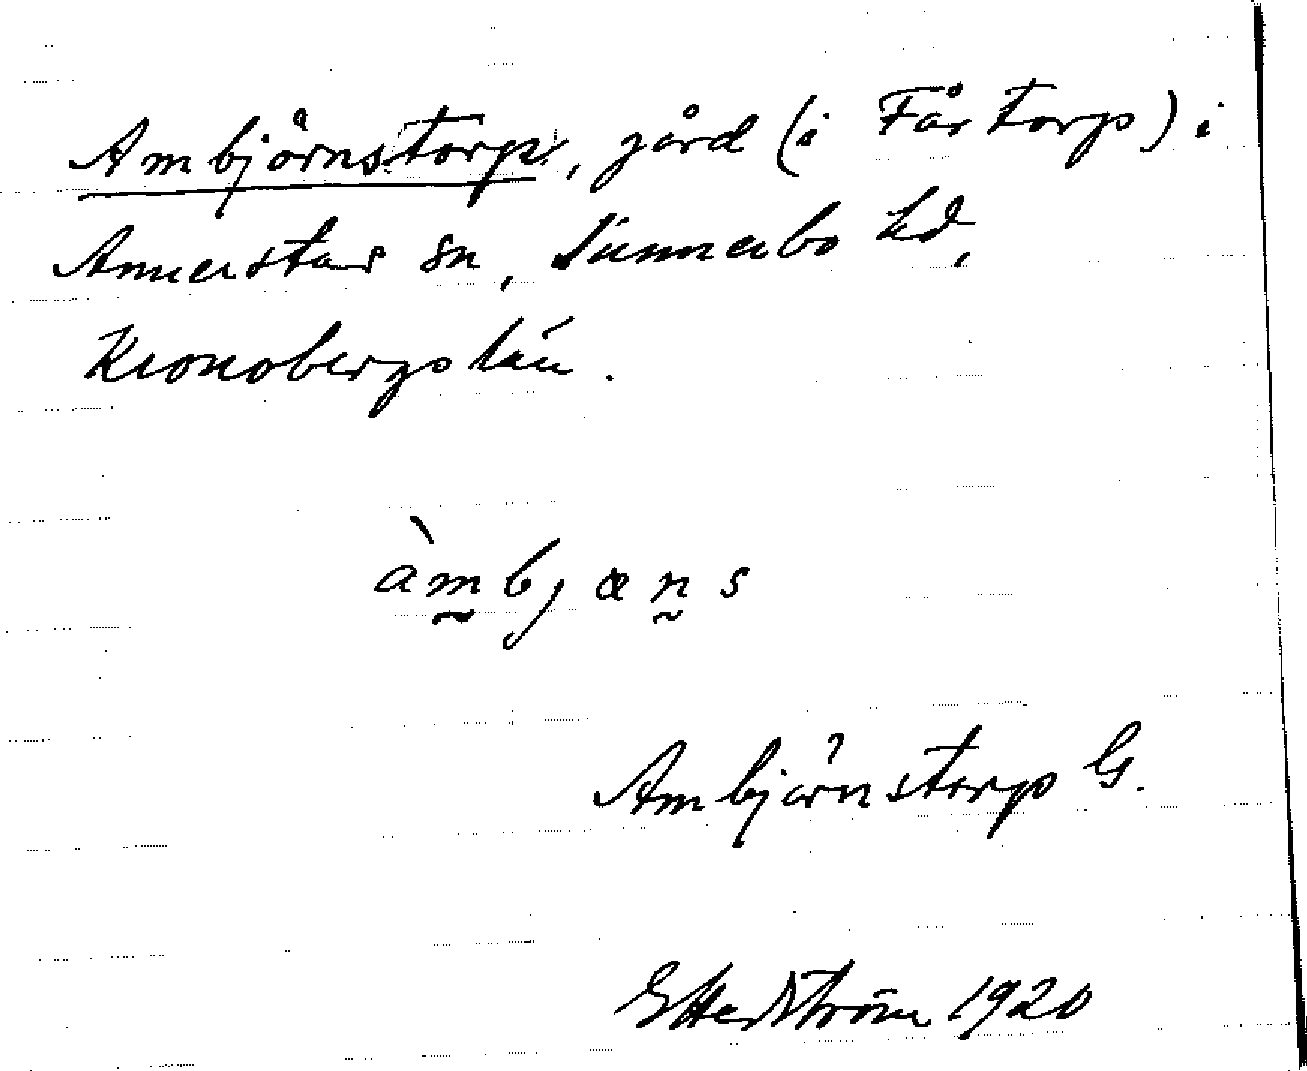 Ambjörnstorp, gård (i Fårtorp) i
Annerstas sn, Sunnerbo hd,
Kronobergs län.
àmbjœns
Ambjörnstorp G.
1920